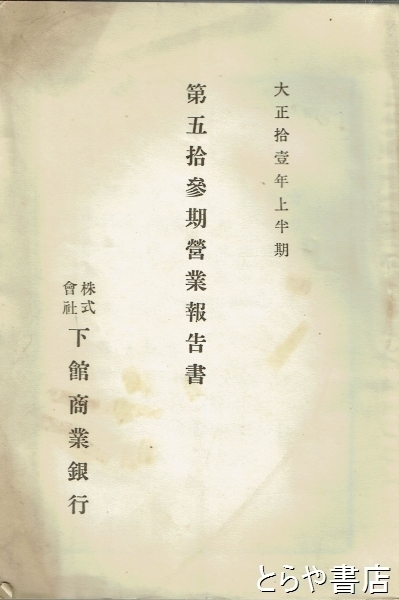 大正拾壹年上半期
第五拾參期營業報告書
株式會社下館商業銀行
とらや書店